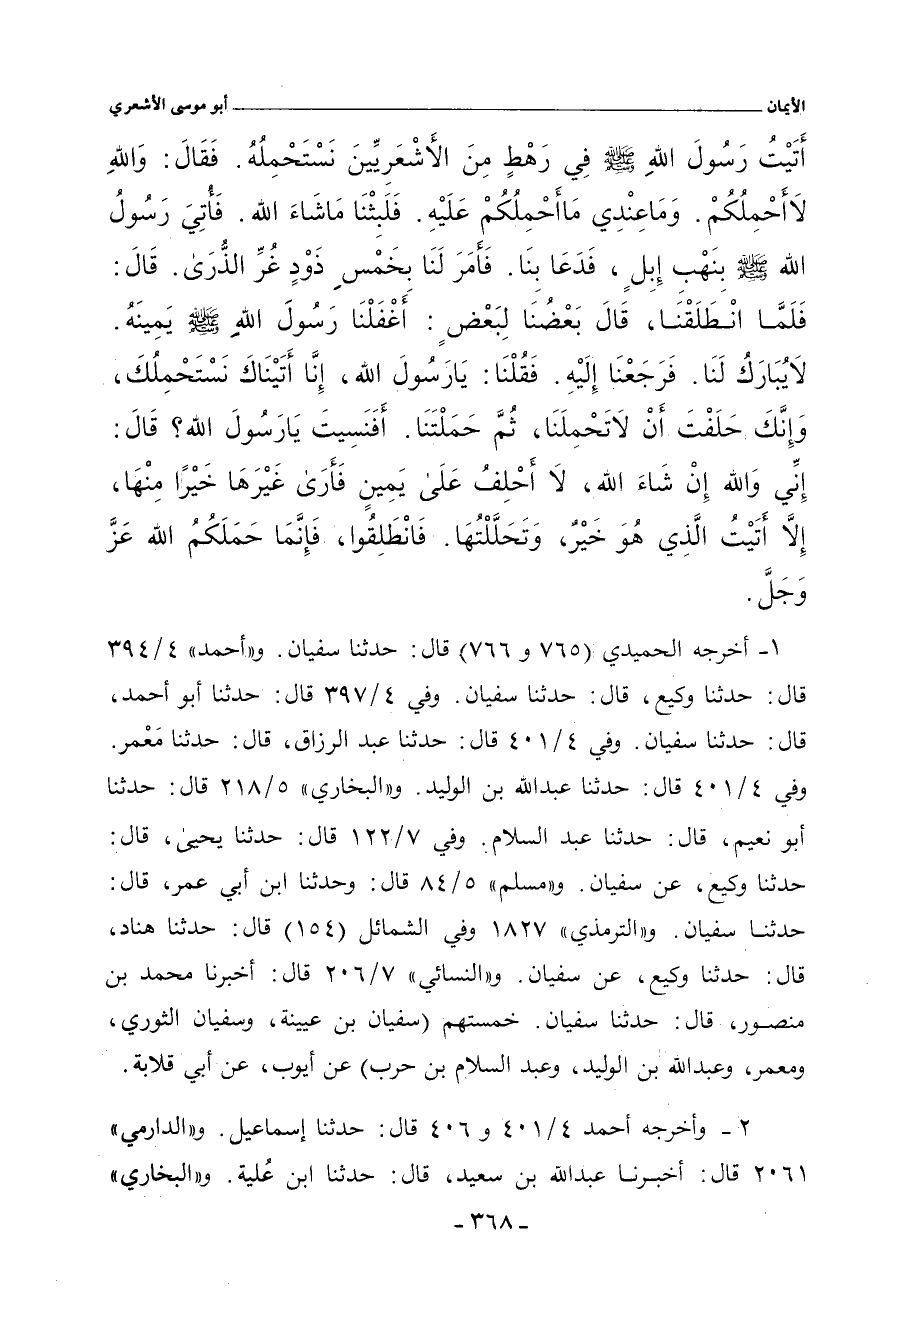 الأيمان ــــــــــــــــــــــــــــــــــــــــــــــــ أبو موسى الأشعري
أَتَيْتُ رَسُولَ اللهِ ﷺ فِي رَهْطٍ مِنَ الْأَشْعَرِيِّينَ نَسْتَحْمِلُهُ. فَقَالَ: وَاللهِ
لَاأَحْمِلُكُمْ. وَمَاعِنْدِي مَاأَحْمِلُكُمْ عَلَيْهِ. فَلَبِثْنَا مَاشَاءَ الله. فَأُتِيَ رَسُولُ
الله ﷺ بِنَهْبِ إِبِلٍ، فَدَعَا بِنَا. فَأَمَرَ لَنَا بِخَمْسِ ذَوْدٍ غُرِّ الذُّرَىٰ. قَالَ:
فَلَمَّا انْطَلَقْنَا، قَالَ بَعْضُنَا لِبَعْضٍ: أَغْفَلْنَا رَسُولَ اللهِ ﷺ يَمِينَهُ.
لَايُبَارَكُ لَنَا. فَرَجَعْنَا إِلَيْهِ. فَقُلْنَا: يَارَسُولَ الله، إِنَّا أَتَيْنَاكَ نَسْتَحْمِلُكَ،
وَإِنَّكَ حَلَفْتَ أَنْ لَاتَحْمِلَنَا، ثُمَّ حَمَلْتَنَا. أَفَنَسِيتَ يَارَسُولَ الله؟ قَالَ:
إِنِّي وَالله إِنْ شَاءَ الله، لَا أَحْلِفُ عَلَىٰ يَمِينٍ فَأَرَىٰ غَيْرَهَا خَيْرًا مِنْهَا،
إِلَّا أَتَيْتُ الَّذِي هُوَ خَيْرٌ، وَتَحَلَّلْتُهَا. فَانْطَلِقُوا، فَإِنَّمَا حَمَلَكُمُ الله عَزَّ
وَجَلَّ.
١- أخرجه الحميدي (٧٦٥ و ٧٦٦) قال: حدثنا سفيان. و«أحمد» ٣٩٤/٤
قال: حدثنا وكيع، قال: حدثنا سفيان. وفي ٣٩٧/٤ قال: حدثنا أبو أحمد،
قال: حدثنا سفيان. وفي ٤٠١/٤ قال: حدثنا عبد الرزاق، قال: حدثنا مَعْمر.
وفي ٤٠١/٤ قال: حدثنا عبدالله بن الوليد. و«البخاري» ٢١٨/٥ قال: حدثنا
أبو نعيم، قال: حدثنا عبد السلام. وفي ١٢٢/٧ قال: حدثنا يحيىٰ، قال:
حدثنا وكيع، عن سفيان. و«مسلم» ٨٤/٥ قال: وحدثنا ابن أبي عمر، قال:
حدثنا سفيان. و«الترمذي» ١٨٢٧ وفي الشمائل (١٥٤) قال: حدثنا هناد،
قال: حدثنا وكيع، عن سفيان. و«النسائي» ٢٠٦/٧ قال: أخبرنا محمد بن
منصور، قال: حدثنا سفيان. خمستهم (سفيان بن عيينة، وسفيان الثوري،
ومعمر، وعبدالله بن الوليد، وعبد السلام بن حرب) عن أيوب، عن أبي قلابة.
٢ - وأخرجه أحمد ٤٠١/٤ و ٤٠٦ قال: حدثنا إسماعيل. و«الدارمي»
٢٠٦١ قال: أخبرنا عبدالله بن سعيد، قال: حدثنا ابن عُلية. و«البخاري»
- ٣٦٨ -